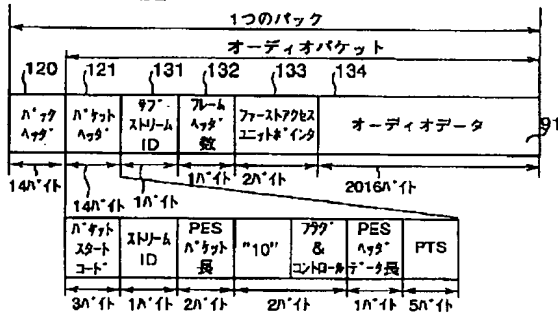 1つのパック
オーディオパケット
120 121 131 132 133 134
パックヘッダ
パケットヘッダ
サブ・ストリームID
フレームヘッダ数
ファーストアクセスユニットポインタ
オーディオデータ
91
14バイト 14バイト 1バイト 1バイト 2バイト 2016バイト
パケットスタートコード
ストリームID
PESパケット長
"10"
フラグ&コントロール
PESヘッダデータ長
PTS
3バイト 1バイト 2バイト 2バイト 1バイト 5バイト